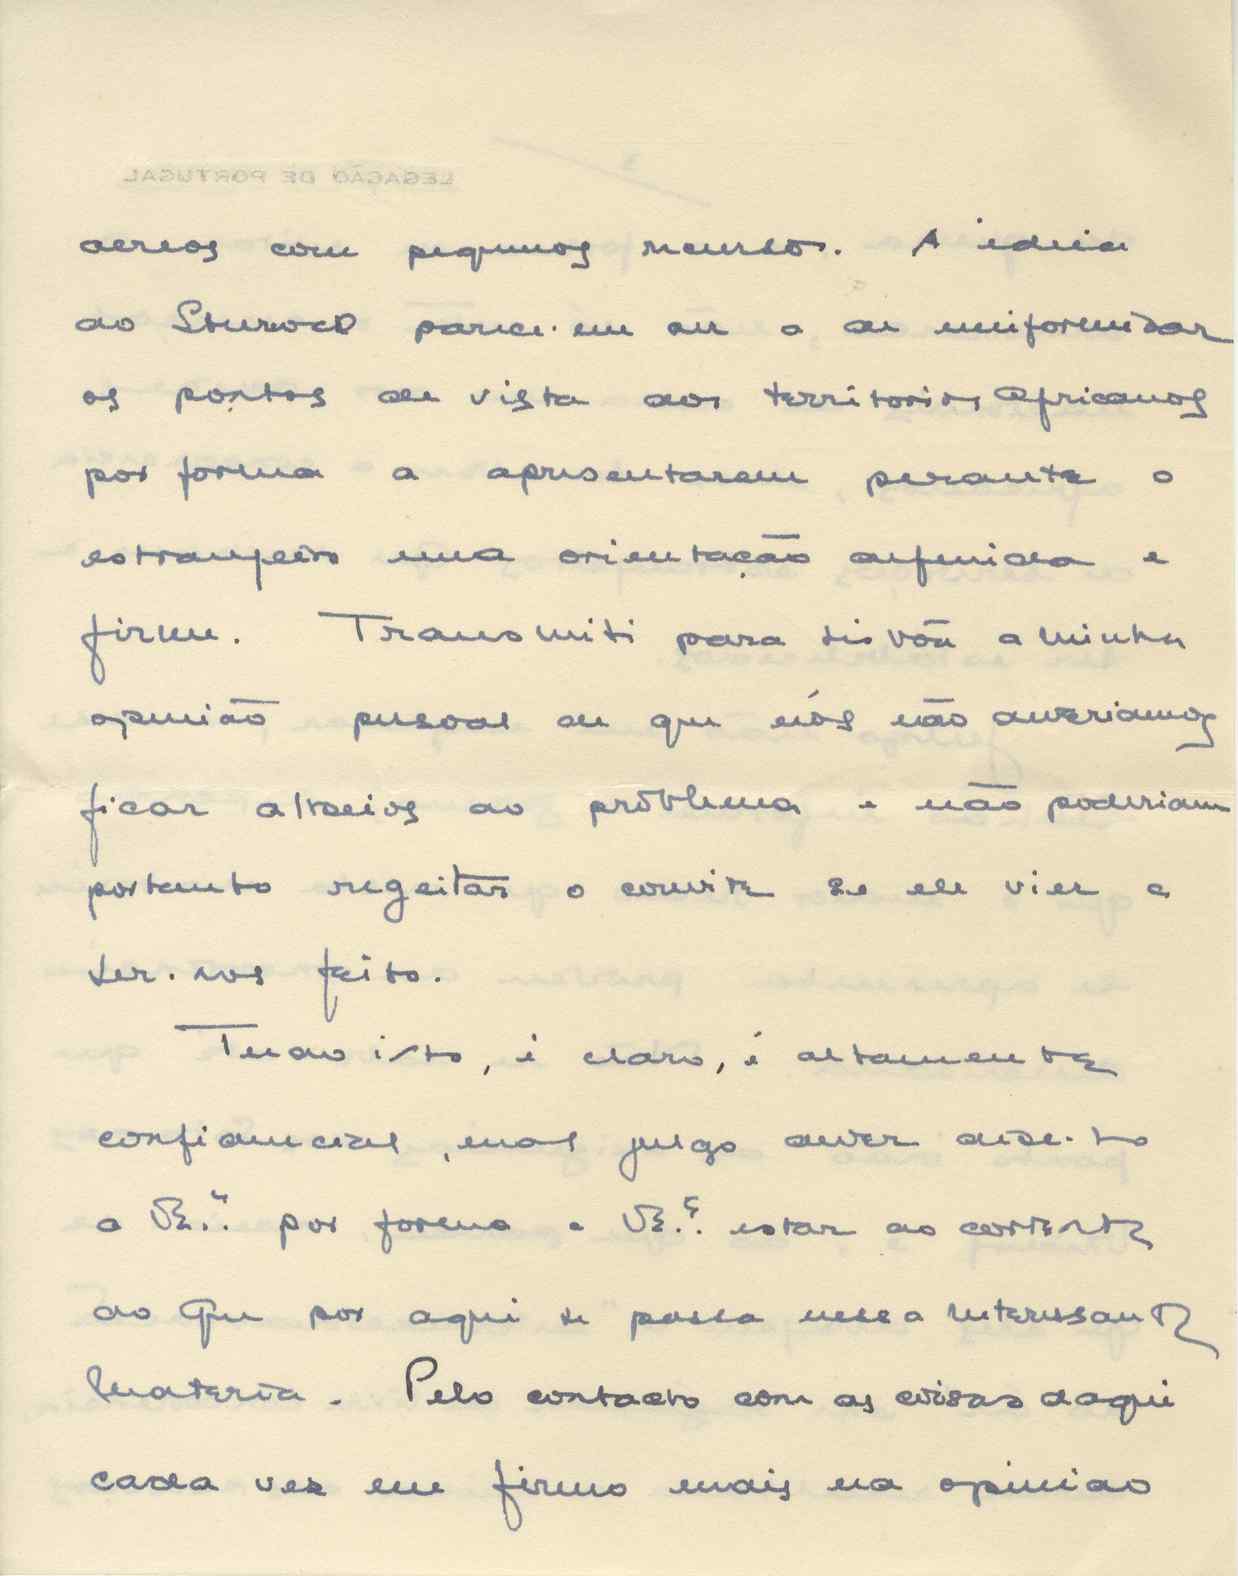 aereos com pequenos recursos. A ideia
do Sturrock parece-me ser a de uniformizar
os pontos de vista dos territorios Africanos
por forma a apresentarem perante o
estrangeiro uma orientação definida e
firme. Transmiti para Lisbôa a minha
opinião pessoal de que nós não deveriamos
ficar alheios ao problema e não poderiamos
portanto regeitar o convite se ele vier a
ser-nos feito.
Tudo isto, é claro, é altamente
confidencial, mas julgo dever dize-lo
a VE.ª por forma a VE.ª estar ao corrente
do que por aqui se passa nessa interessante
materia. Pelo contacto com as coisas daqui
cada vez me firmo mais na opinião
LEGAÇÃO DE PORTUGAL